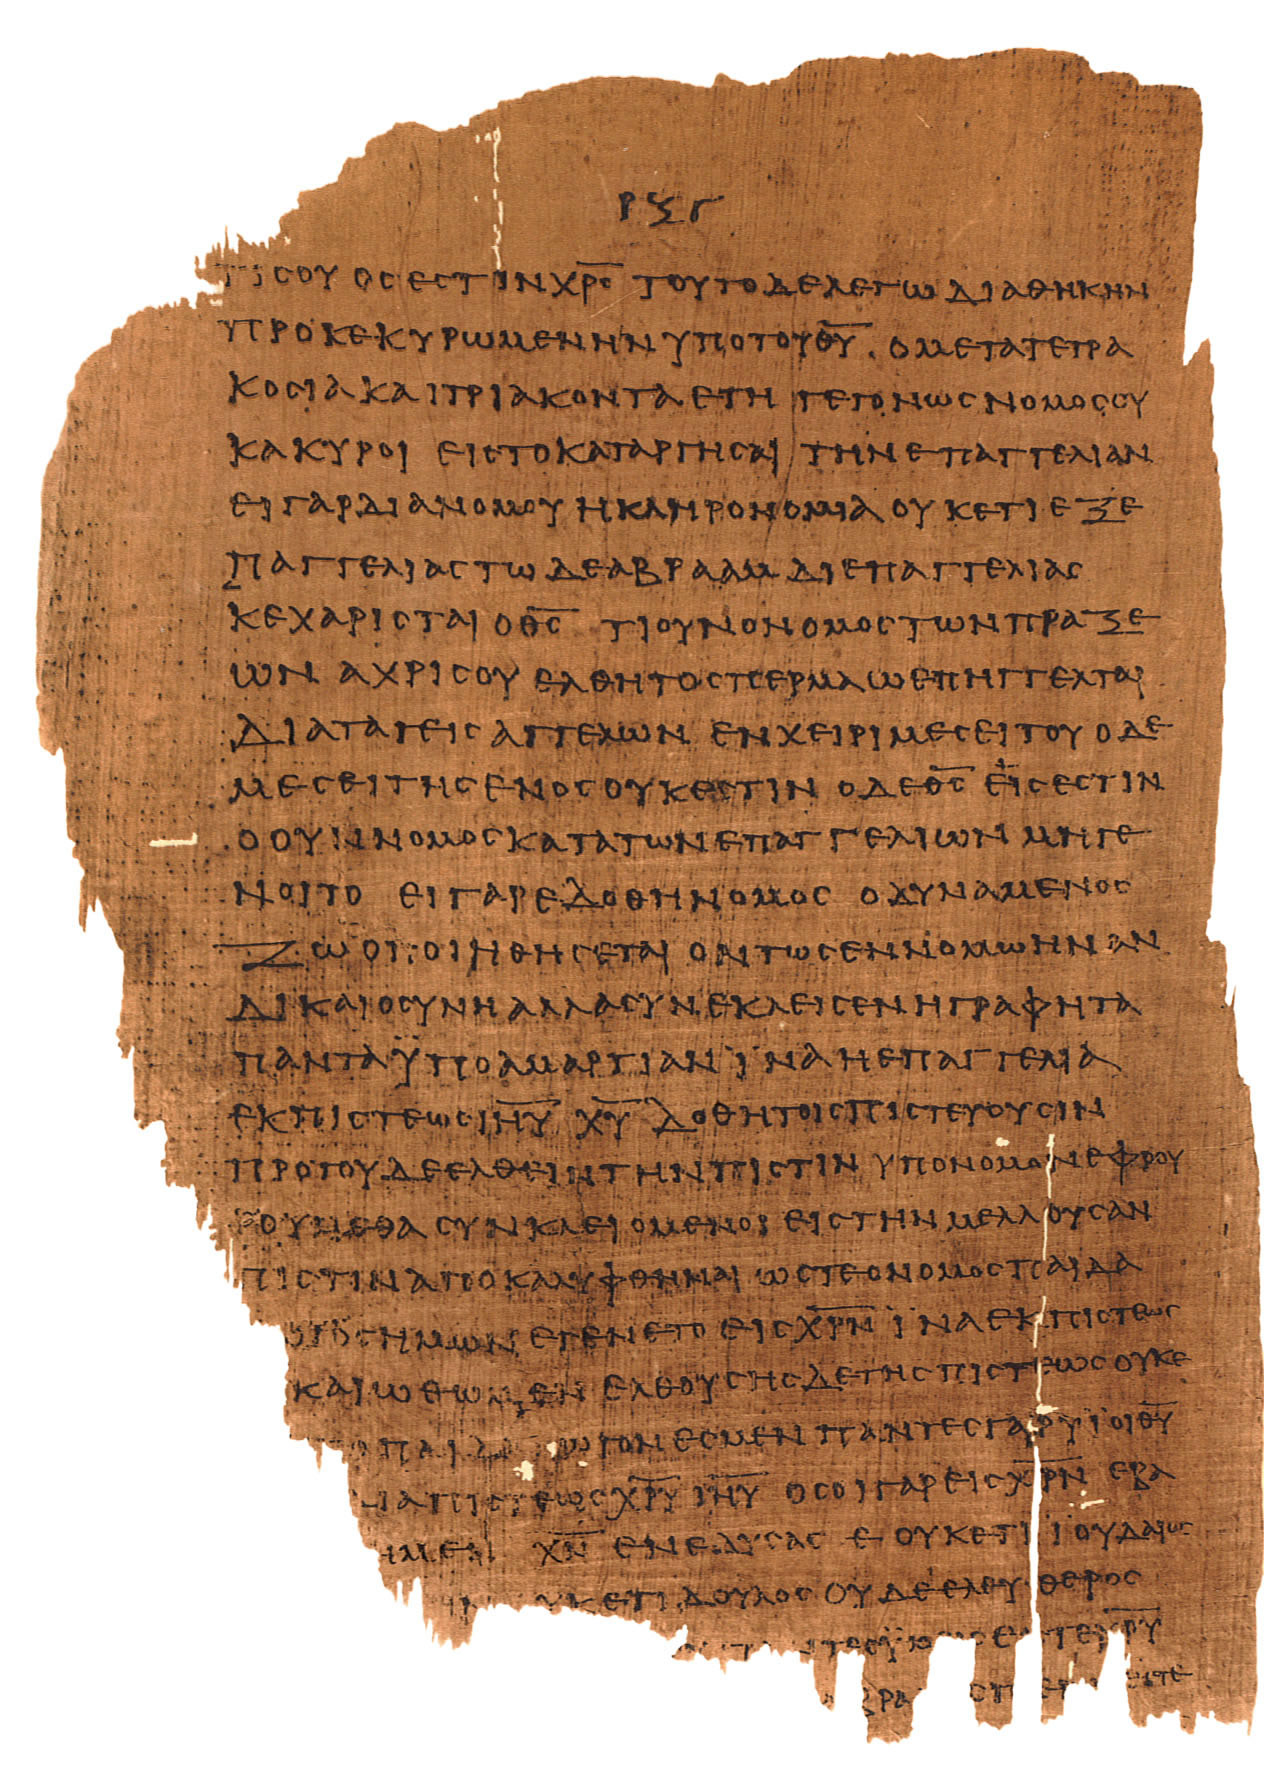 ΡΞΓ
ΤΙ ϹΟΥ ΟϹ ΕϹΤΙΝ Χ̅Ρ̅Ϲ̅ ΤΟΥΤΟ ΔΕ ΛΕΓΩ ΔΙΑΘΗΚΗΝ
ΠΡΟΚΕΚΥΡΩΜΕΝΗΝ ΥΠΟ ΤΟΥ Θ̅Υ̅ · Ο ΜΕΤΑ ΤΕΤΡΑ
ΚΟϹΙΑ ΚΑΙ ΤΡΙΑΚΟΝΤΑ ΕΤΗ ΓΕΓΟΝΩϹ ΝΟΜΟϹ ΟΥ
ΚΑΚΥΡΟΙ ΕΙϹ ΤΟ ΚΑΤΑΡΓΗϹΑΙ ΤΗΝ ΕΠΑΓΓΕΛΙΑΝ
ΕΙ ΓΑΡ ΔΙΑ ΝΟΜΟΥ Η ΚΛΗΡΟΝΟΜΙΑ ΟΥΚΕΤΙ ΕΞ Ε
ΠΑΓΓΕΛΙΑϹ ΤΩ ΔΕ ΑΒΡΑΑΜ ΔΙ ΕΠΑΓΓΕΛΙΑϹ
ΚΕΧΑΡΙϹΤΑΙ Ο Θ̅Ϲ̅ ΤΙ ΟΥΝ Ο ΝΟΜΟϹ ΤΩΝ ΠΡΑΞΕ
ΩΝ ΑΧΡΙϹ ΟΥ ΕΛΘΗ ΤΟ ϹΠΕΡΜΑ Ω ΕΠΗΓΓΕΛΤΑΙ
ΔΙΑΤΑΓΕΙϹ ΑΓΓΕΛΩΝ ΕΝ ΧΕΙΡΙ ΜΕϹΕΙΤΟΥ Ο ΔΕ
ΜΕϹΕΙΤΗϹ ΕΝΟϹ ΟΥΚ ΕϹΤΙΝ Ο ΔΕ Θ̅Ϲ̅ ΕΙϹ ΕϹΤΙΝ
Ο ΟΥΝ ΝΟΜΟϹ ΚΑΤΑ ΤΩΝ ΕΠΑΓΓΕΛΙΩΝ ΜΗ ΓΕ
ΝΟΙΤΟ ΕΙ ΓΑΡ ΕΔΟΘΗ ΝΟΜΟϹ Ο ΔΥΝΑΜΕΝΟϹ
ΖΩΟΠΟΙΗΘΗϹΕΤΑΙ ΟΝΤΩϹ ΕΝ ΝΟΜΩ ΗΝ ΑΝ
ΔΙΚΑΙΟϹΥΝΗ ΑΛΛΑ ϹΥΝΕΚΛΕΙϹΕΝ Η ΓΡΑΦΗ ΤΑ
ΠΑΝΤΑ ΫΠΟ ΑΜΑΡΤΙΑΝ ΪΝΑ Η ΕΠΑΓΓΕΛΙΑ
ΕΚ ΠΙϹΤΕΩϹ Ι̅Η̅Υ̅ Χ̅Υ̅ ΔΟΘΗ ΤΟΙϹ ΠΙϹΤΕΥΟΥϹΙΝ
ΠΡΟ ΤΟΥ ΔΕ ΕΛΘΕΙΝ ΤΗΝ ΠΙϹΤΙΝ ΥΠΟ ΝΟΜΟΝ ΕΦΡΟΥ
ΡΟΥΜΕΘΑ ϹΥΝΚΛΕΙΟΜΕΝΟΙ ΕΙϹ ΤΗΝ ΜΕΛΛΟΥϹΑΝ
ΠΙϹΤΙΝ ΑΠΟΚΑΛΥΦΘΗΝΑΙ ΩϹΤΕ Ο ΝΟΜΟϹ ΠΑΙΔΑ
ΓΩΓΟϹ ΗΜΩΝ ΕΓΕΝΕΤΟ ΕΙϹ Χ̅Ρ̅Ν̅ ΪΝΑ ΕΚ ΠΙϹΤΕΩϹ
ΚΑΙΩΘΩΜΕΝ ΕΛΘΟΥϹΗϹ ΔΕ ΤΗϹ ΠΙϹΤΕΩϹ ΟΥΚΕ
Ο ΠΑΙΔΑΓΩΓΟΝ ΕϹΜΕΝ ΠΑΝΤΕϹ ΓΑΡ ΥΪΟΙ Θ̅Υ̅
ΔΙΑ ΠΙϹΤΕΩϹ Χ̅Ρ̅Υ̅ Ι̅Η̅Υ̅ ΟϹΟΙ ΓΑΡ ΕΙϹ Χ̅Ρ̅Ν̅ ΕΒΑ
Χ̅Ν̅ ΕΝΕΔΥϹΑϹ Ε ΟΥΚΕΤΙ ΪΟΥΔΑΙΟϹ
ΥΚΕΤΙ ΔΟΥΛΟϹ ΟΥΔΕ ΕΛΕΥΘΕΡΟϹ
ΝΤΕϹ ΫΜΕΙϹ ΕϹΤΕ Χ̅Ρ̅Υ̅